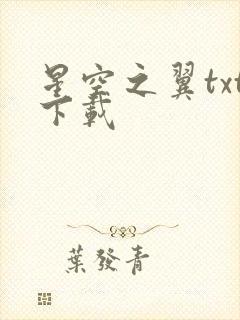 星空之翼txt
下載
葉發青